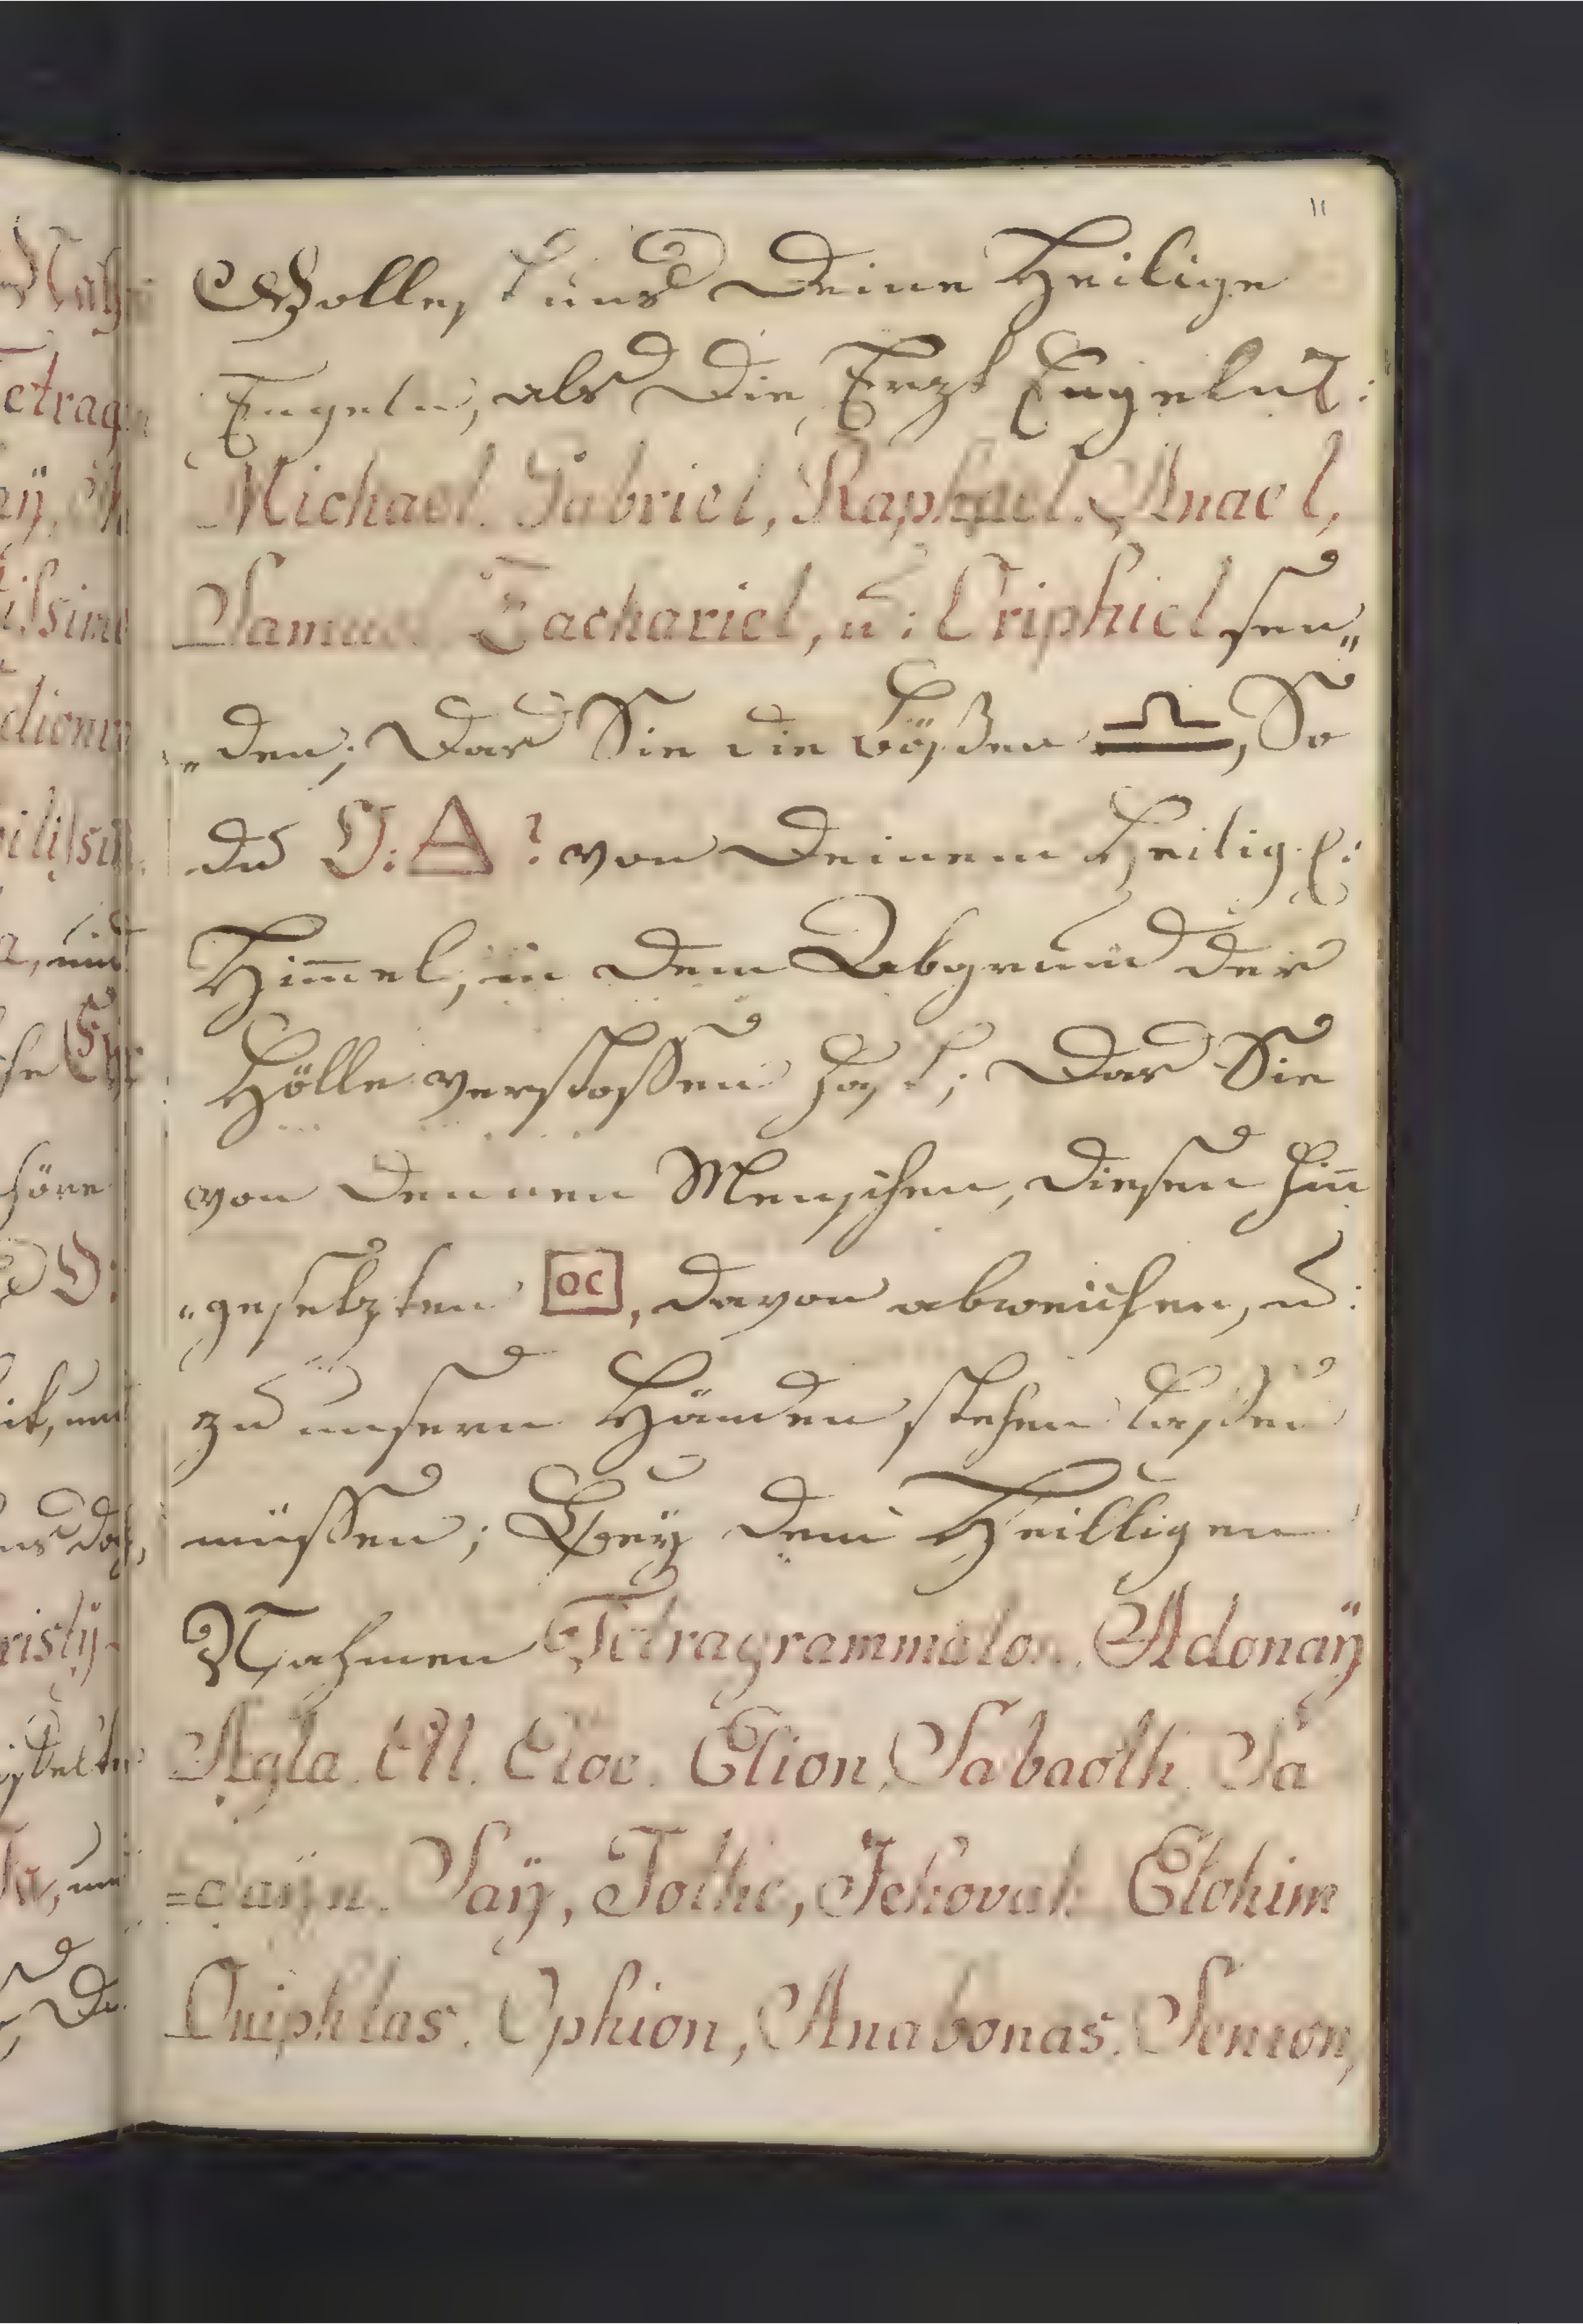 11
Wollest uns Deine Heilige
Engeln, als Die Ertz Engeln:
Michael. Gabriel, Raphael. Anael,
Samuel Zachariel, u: Oriphiel sen„
„den; Das Sie die bößen ♎, So
du O: von Deinem Heilig:
Himmel, in dem Abgrund der
Hölle verstossen hast; Das Sie
von Dennen Menschen, Diesen hin
„gesetzten OC, davon abweichen, u:
zu unsern Händen stehen laßen
müssen; Bey dem Heilligen
Nahmen Tetragrammaton. Adonaÿ
Agla. Ell. Eloe. Elion, Sabaoth, Sa
=daÿn. Saÿ, Tothe, Jehovah Elohim
Oniphlas. Ophion, Anabonas,